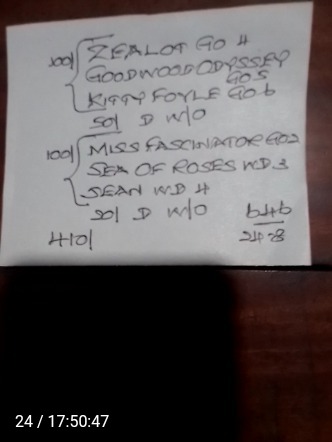 100/ ZEALOT GO 4
GOODWOOD ODYSSEY
GO 5
KITTY FOYLE GO 6
50/ D W/O
100/ MISS FASCINATOR GO 2
SEA OF ROSES WD 3
SEAN WD 4
50/ D W/O
410/
24 / 17:50:47